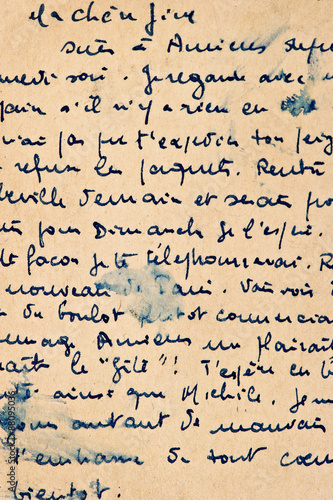 Ma chère
suis à Amiens depu
medi soir. Je regarde avec
s'il n'y a rien en
vrai pas pu t'expédier ton
refuse les paquets. Rentre
lleville demain et serais
pour Dimanche je l'espère.
te façon je te téléphonerai. R
nouveau de Paris. Vais voir
du boulot plutôt commercia
Amiens me plairait
le "gîte"! T'espère en b
té ainsi que Michèle. Je
autant de mauvais
t'embrasse de tout coeu
bientôt.